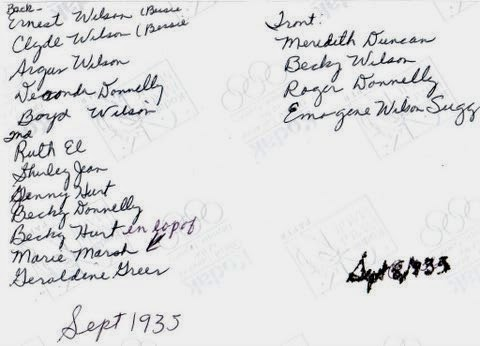 Back -
Ernest Wilson (Bessie
Clyde Wilson (Bessie
Argus Wilson
Donnelly
Boyd Wilson
2nd
Ruth El
Shirley Jean
Jenny Hurt
Becky Donnelly
Becky Hurt in top of
Marie Marsh
Geraldine Greer
Sept 1935
Front:
Meredith Duncan
Becky Wilson
Roger Donnelly
Emogene Wilson Sugg
Sept 8, 1935
Kodak